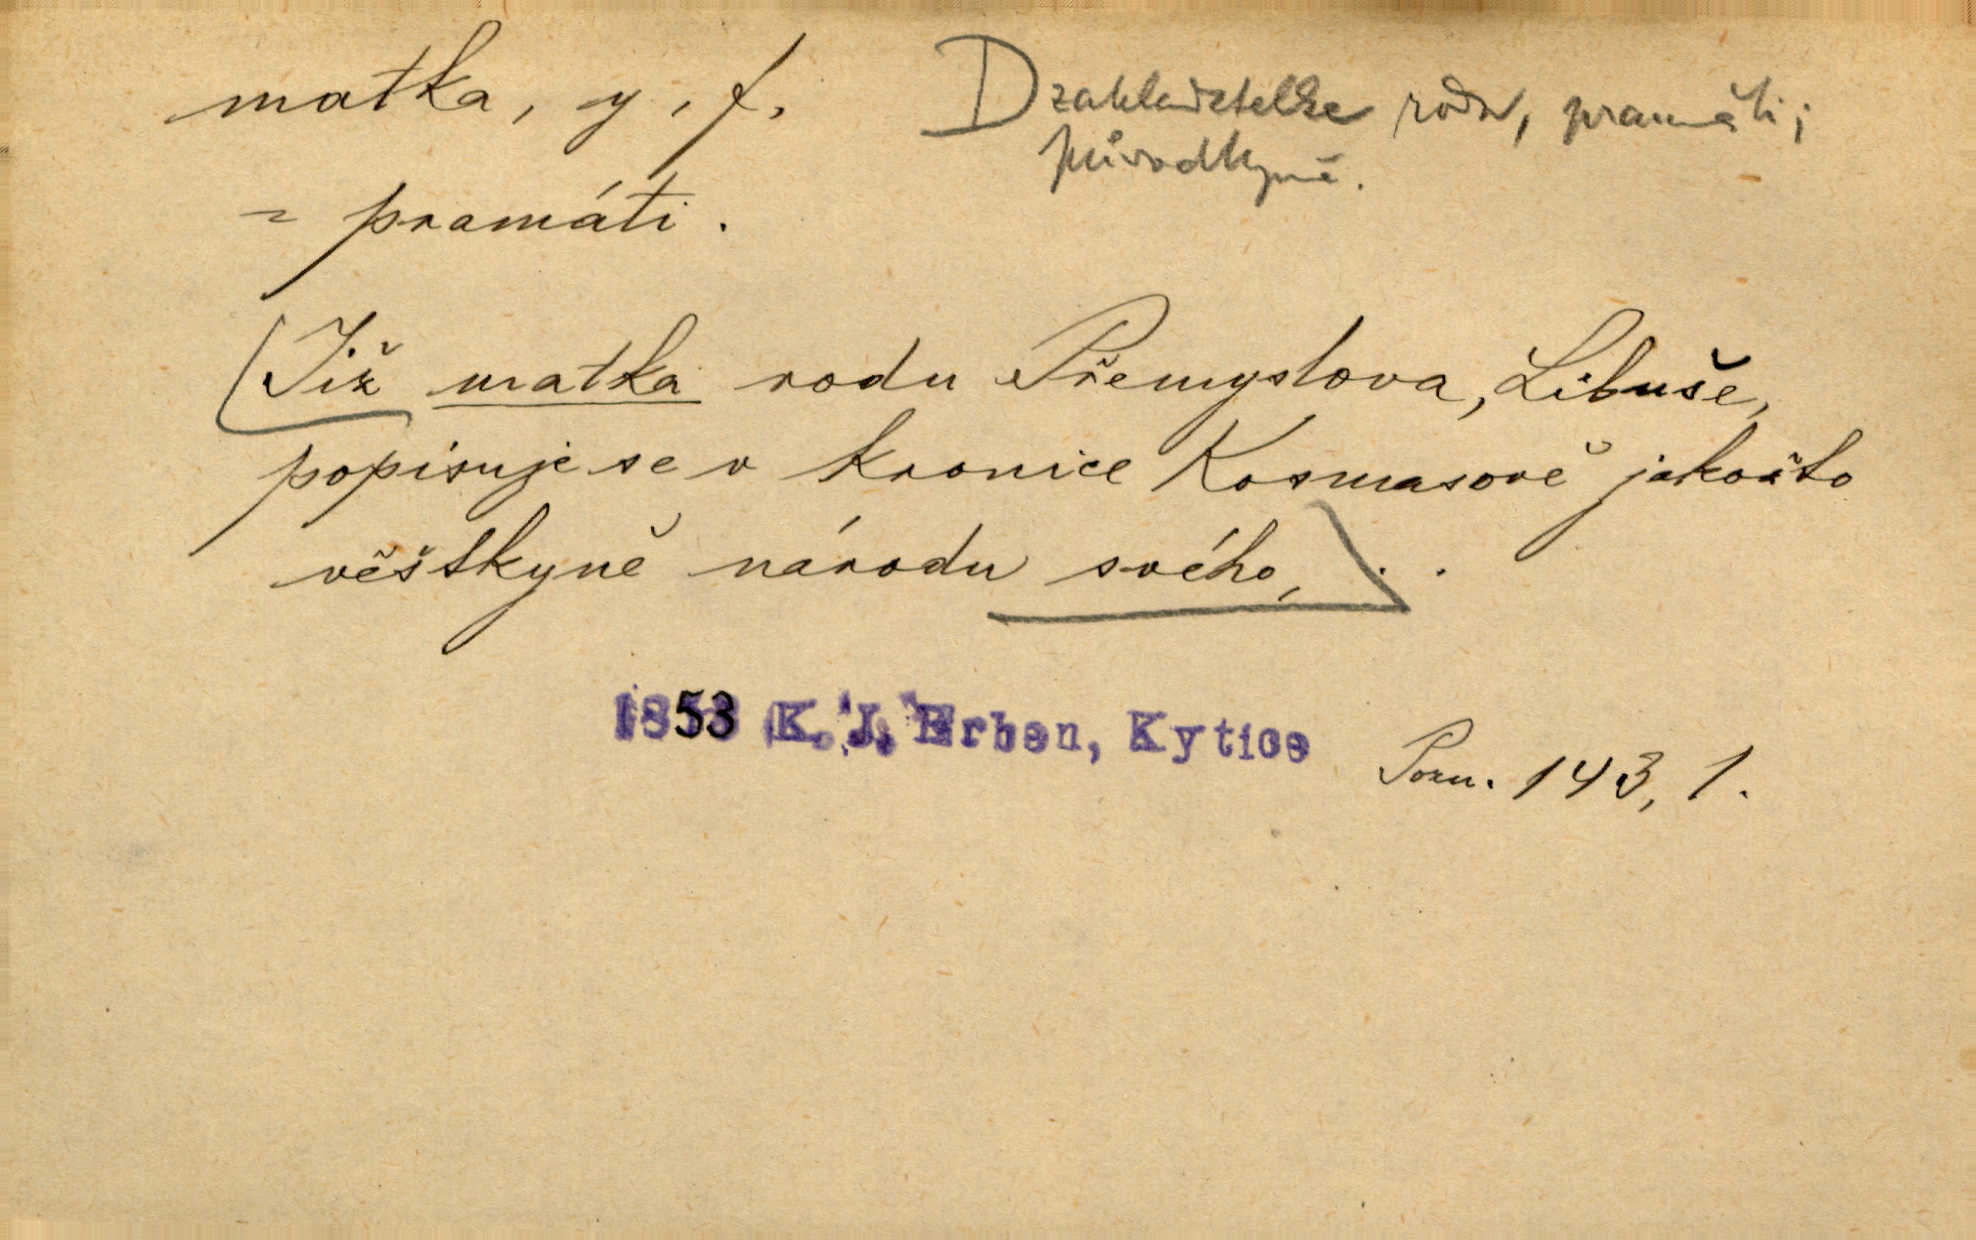 matka, y, f.
D zakladatelka rodu, pramáti;
původkyně.
= pramáti.
Již matka rodu Přemyslova, Libuše,
popisuje se v kronice Kosmasově jakožto
věštkyně národu svého, . .
1853 K. J. Erben, Kytice
Pozn. 143, 1.